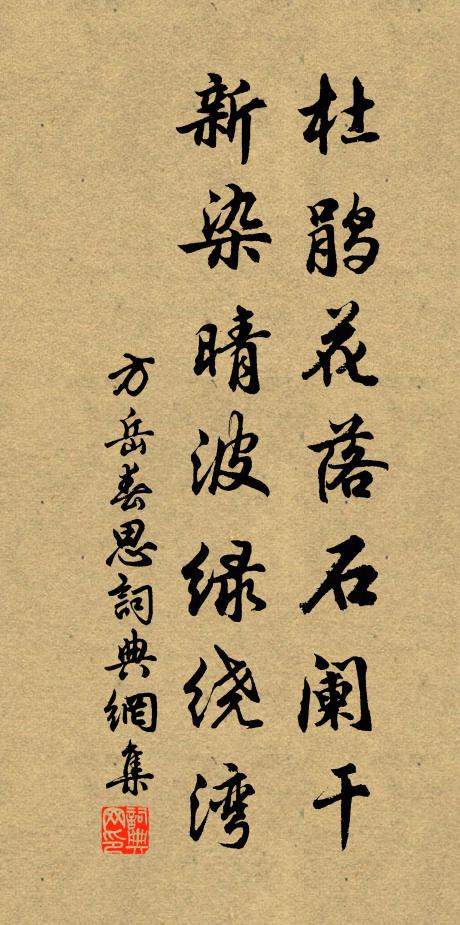 杜鹃花落石阑干
新染晴波绿绕湾
方岳春思詞典網集
詞典网印